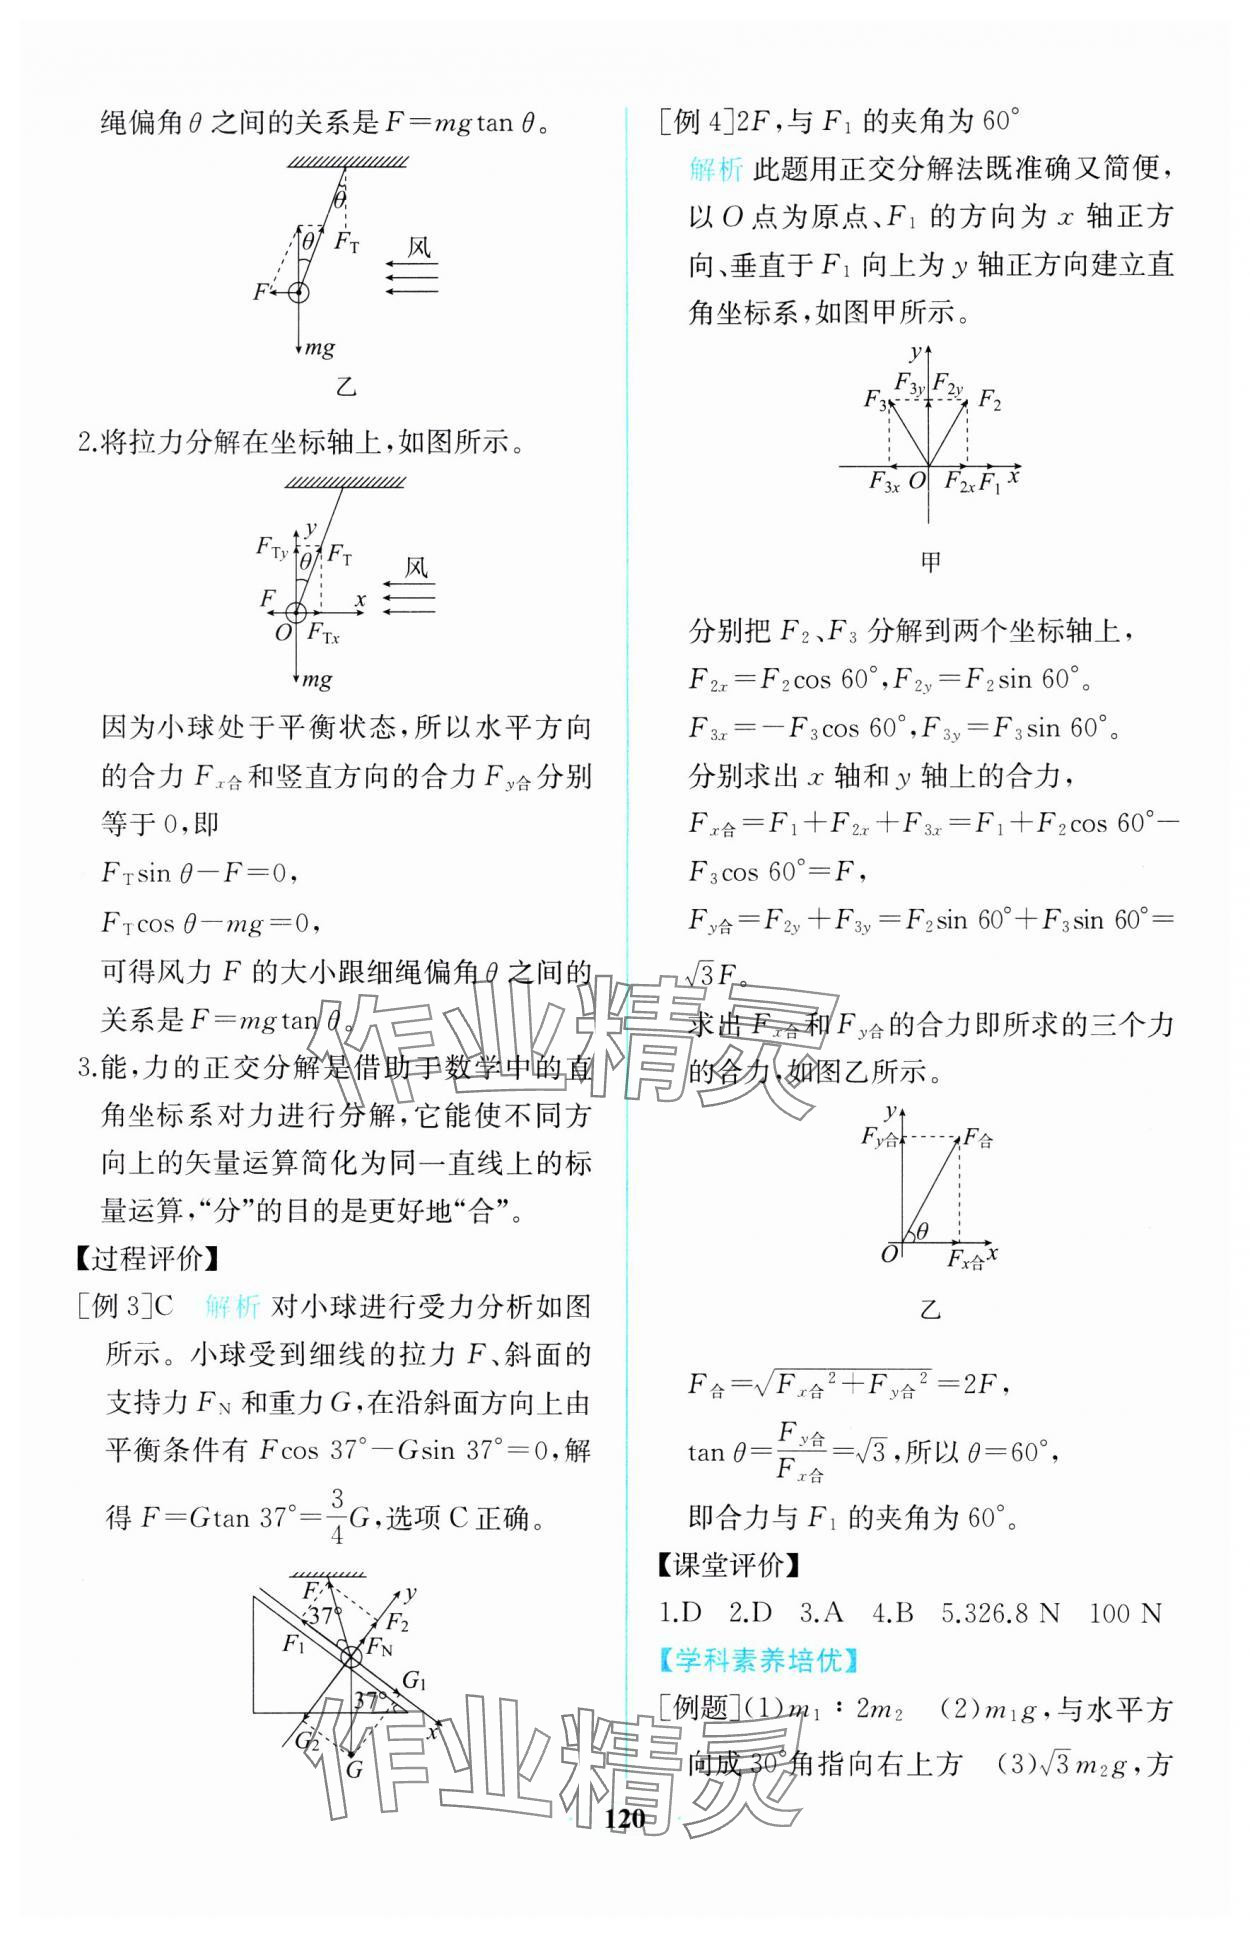 绳偏角θ之间的关系是F=mgtan θ。
θ
θ
F_T
风
F
mg
乙
2.将拉力分解在坐标轴上,如图所示。
y
F_Ty
θ
F_T
风
F
x
O
F_Tx
mg
因为小球处于平衡状态,所以水平方向
的合力 F_x合和竖直方向的合力 F_y合分别
等于0,即
F_T sin θ-F=0,
F_T cos θ-mg=0,
可得风力 F 的大小跟细绳偏角θ之间的
关系是F=mgtan θ。
3.能,力的正交分解是借助于数学中的直
角坐标系对力进行分解,它能使不同方
向上的矢量运算简化为同一直线上的标
量运算,“分”的目的是更好地“合”。
【过程评价】
[例 3]C 解析 对小球进行受力分析如图
所示。小球受到细线的拉力 F、斜面的
支持力 F_N 和重力G,在沿斜面方向上由
平衡条件有 Fcos 37°-Gsin 37°=0,解
得 F=Gtan 37°=3/4G,选项C正确。
F
y
37°
F₂
F₁
F_N
G₁
37°
x
G₂
G
[例 4]2F,与 F₁ 的夹角为 60°
解析 此题用正交分解法既准确又简便,
以O点为原点、F₁ 的方向为 x 轴正方
向、垂直于 F₁ 向上为 y 轴正方向建立直
角坐标系,如图甲所示。
y
F_3y F_2y
F₃
F₂
F_3x O F_2x F₁ x
甲
分别把 F₂、F₃ 分解到两个坐标轴上,
F_2x=F₂cos 60°,F_2y=F₂sin 60°。
F_3x=-F₃cos 60°,F_3y=F₃sin 60°。
分别求出 x 轴和 y 轴上的合力,
F_x合=F₁+F_2x+F_3x=F₁+F₂cos 60°-
F₃cos 60°=F,
F_y合=F_2y+F_3y=F₂sin 60°+F₃sin 60°=
√3F。
求出 F_x合和 F_y合的合力即所求的三个力
的合力,如图乙所示。
y
F_y合
F合
θ
O
F_x合
x
乙
F合=√(F_x合²+F_y合²)=2F,
tan θ=F_y合/F_x合=√3,所以 θ=60°,
即合力与 F₁ 的夹角为 60°。
【课堂评价】
1.D 2.D 3.A 4.B 5.326.8 N 100 N
【学科素养培优】
[例题](1)m₁∶2m₂ (2)m₁g,与水平方
向成30°角指向右上方 (3)√3m₂g,方
120
作业精灵
作业精灵